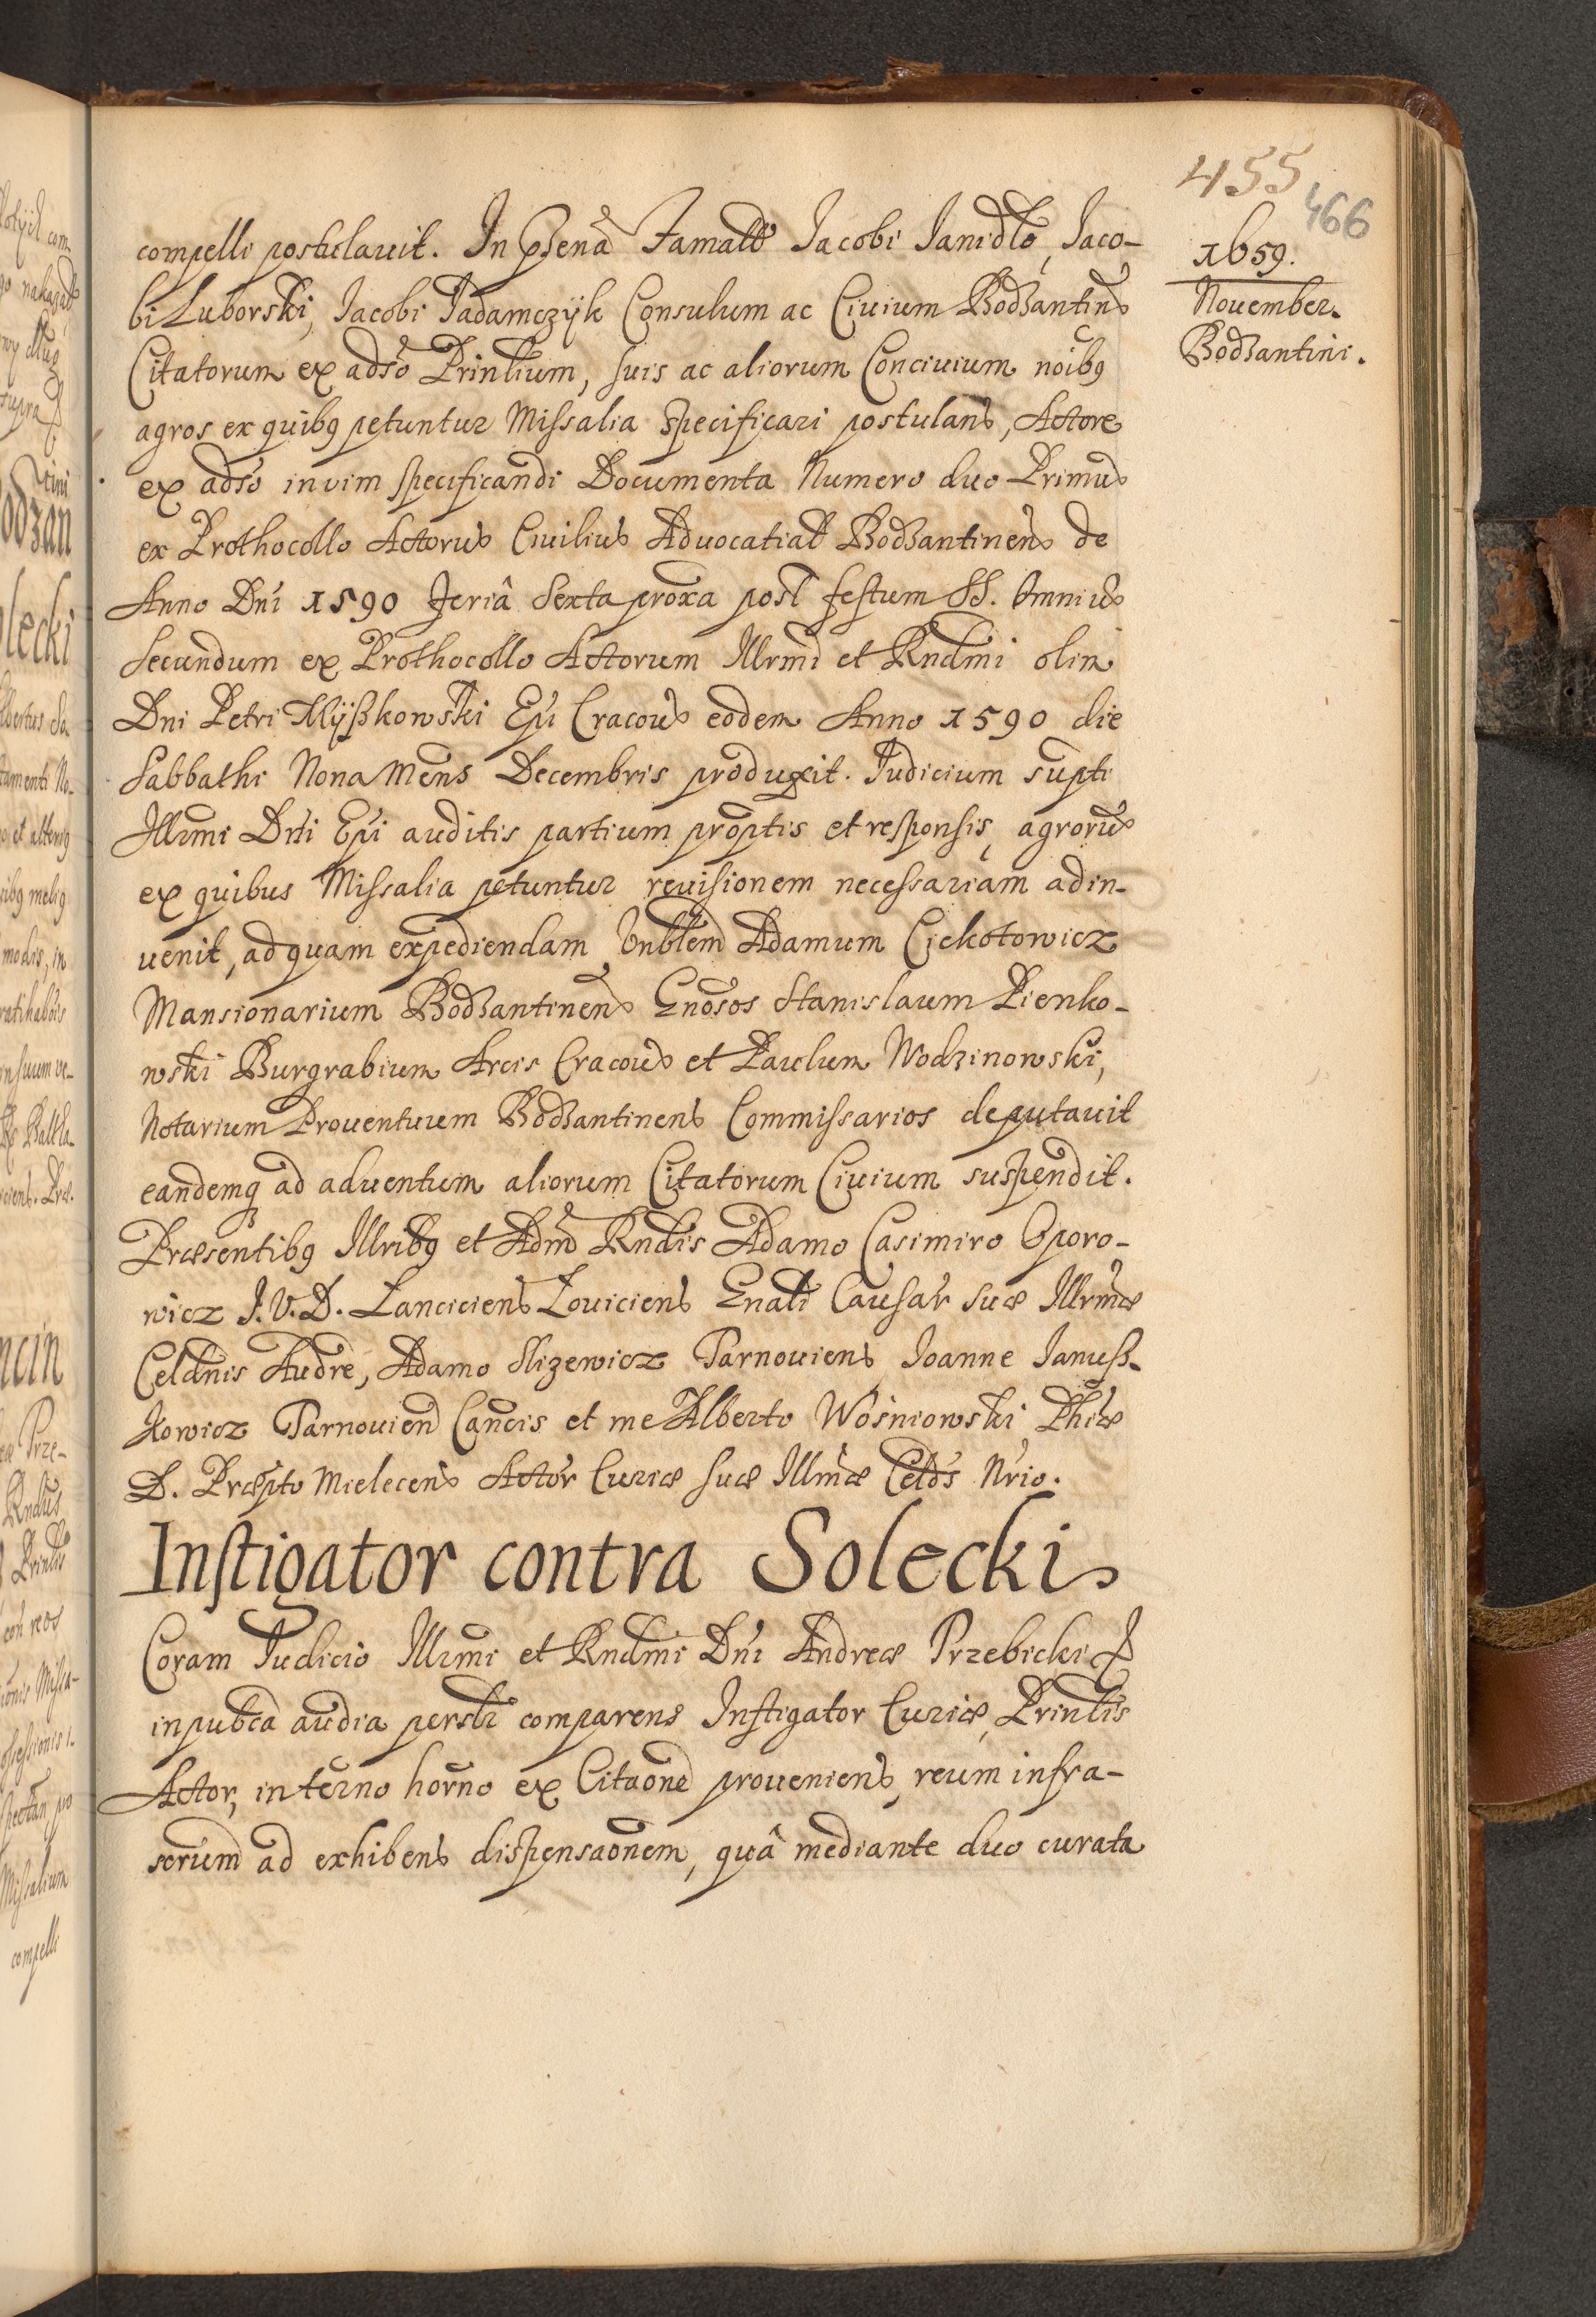 455
466
1659.
November.
Bodzantini.
compelli postulavit. In pñená Famatt Jacobi Janidło, Jaco-
bi Luborski, Jacobi Jadamczÿk Consulum ac Civium Bodzantin
Citatorum ex adsõ Printium, suis ac aliorum Concivium noibq
agros ex quibq petuntur Missalia specificari postulans, Actore
ex adsõ in vim specificandi Documenta Numero duo Primu
ex Prothocollo Actoru Civiliu Advocatial Bodzantinens de
Anno Dni 1590 feriâ Sexta proxa post festum SS. Omniu
Secundum ex Prothocollo Actorum Illrmi et Rndmi olim
Dni Petri Mÿszkowski Epi Cracov eodem Anno 1590 die
Sabbathi Nona Mens Decembris produxit. Judicium supti
Illrmi Dni Epi auditis partium proptis et responsis, agroru
ex quibus Missalia petuntur revisionem necessariam adin-
venit, ad quam expediendam Vnblem Adamum Ciekotowicz
Mansionarium Bodzantinen Gnosos Stanislaum Pienko-
wski Burgrabium Arcis Cracov et Paulum Wodzinowski,
Notarium Proventuum Bodzantinens Commissarios deputavit
eandemq ad adventum aliorum Citatorum Civium suspendit.
Præsentibq Illribq et Admd Rndis Adamo Casimiro Oporo-
wicz J.V.D. Lanciciens Loviciens Gnali Causar suæ Illrmæ
Celdnis Audre, Adamo Slizewicz Tarnoviens, Joanne Janusz-
kowicz Tarnovien Cancis et me Alberto Wosniowski Phiæ
D. Præpto Mielecens Actor Curiæ suæ Illmæ Celds Nrio.
Instigator contra Solecki
Coram Judicio Illrmi et Rndmi Dni Andreæ Trzebicki
in pubca audia persti comparens Instigator Curiæ, Printis
Actor, in termo horno ex Citaone proveniens, reum infra-
scrum ad exhibens dispensaonem, quâ mediante duo curata